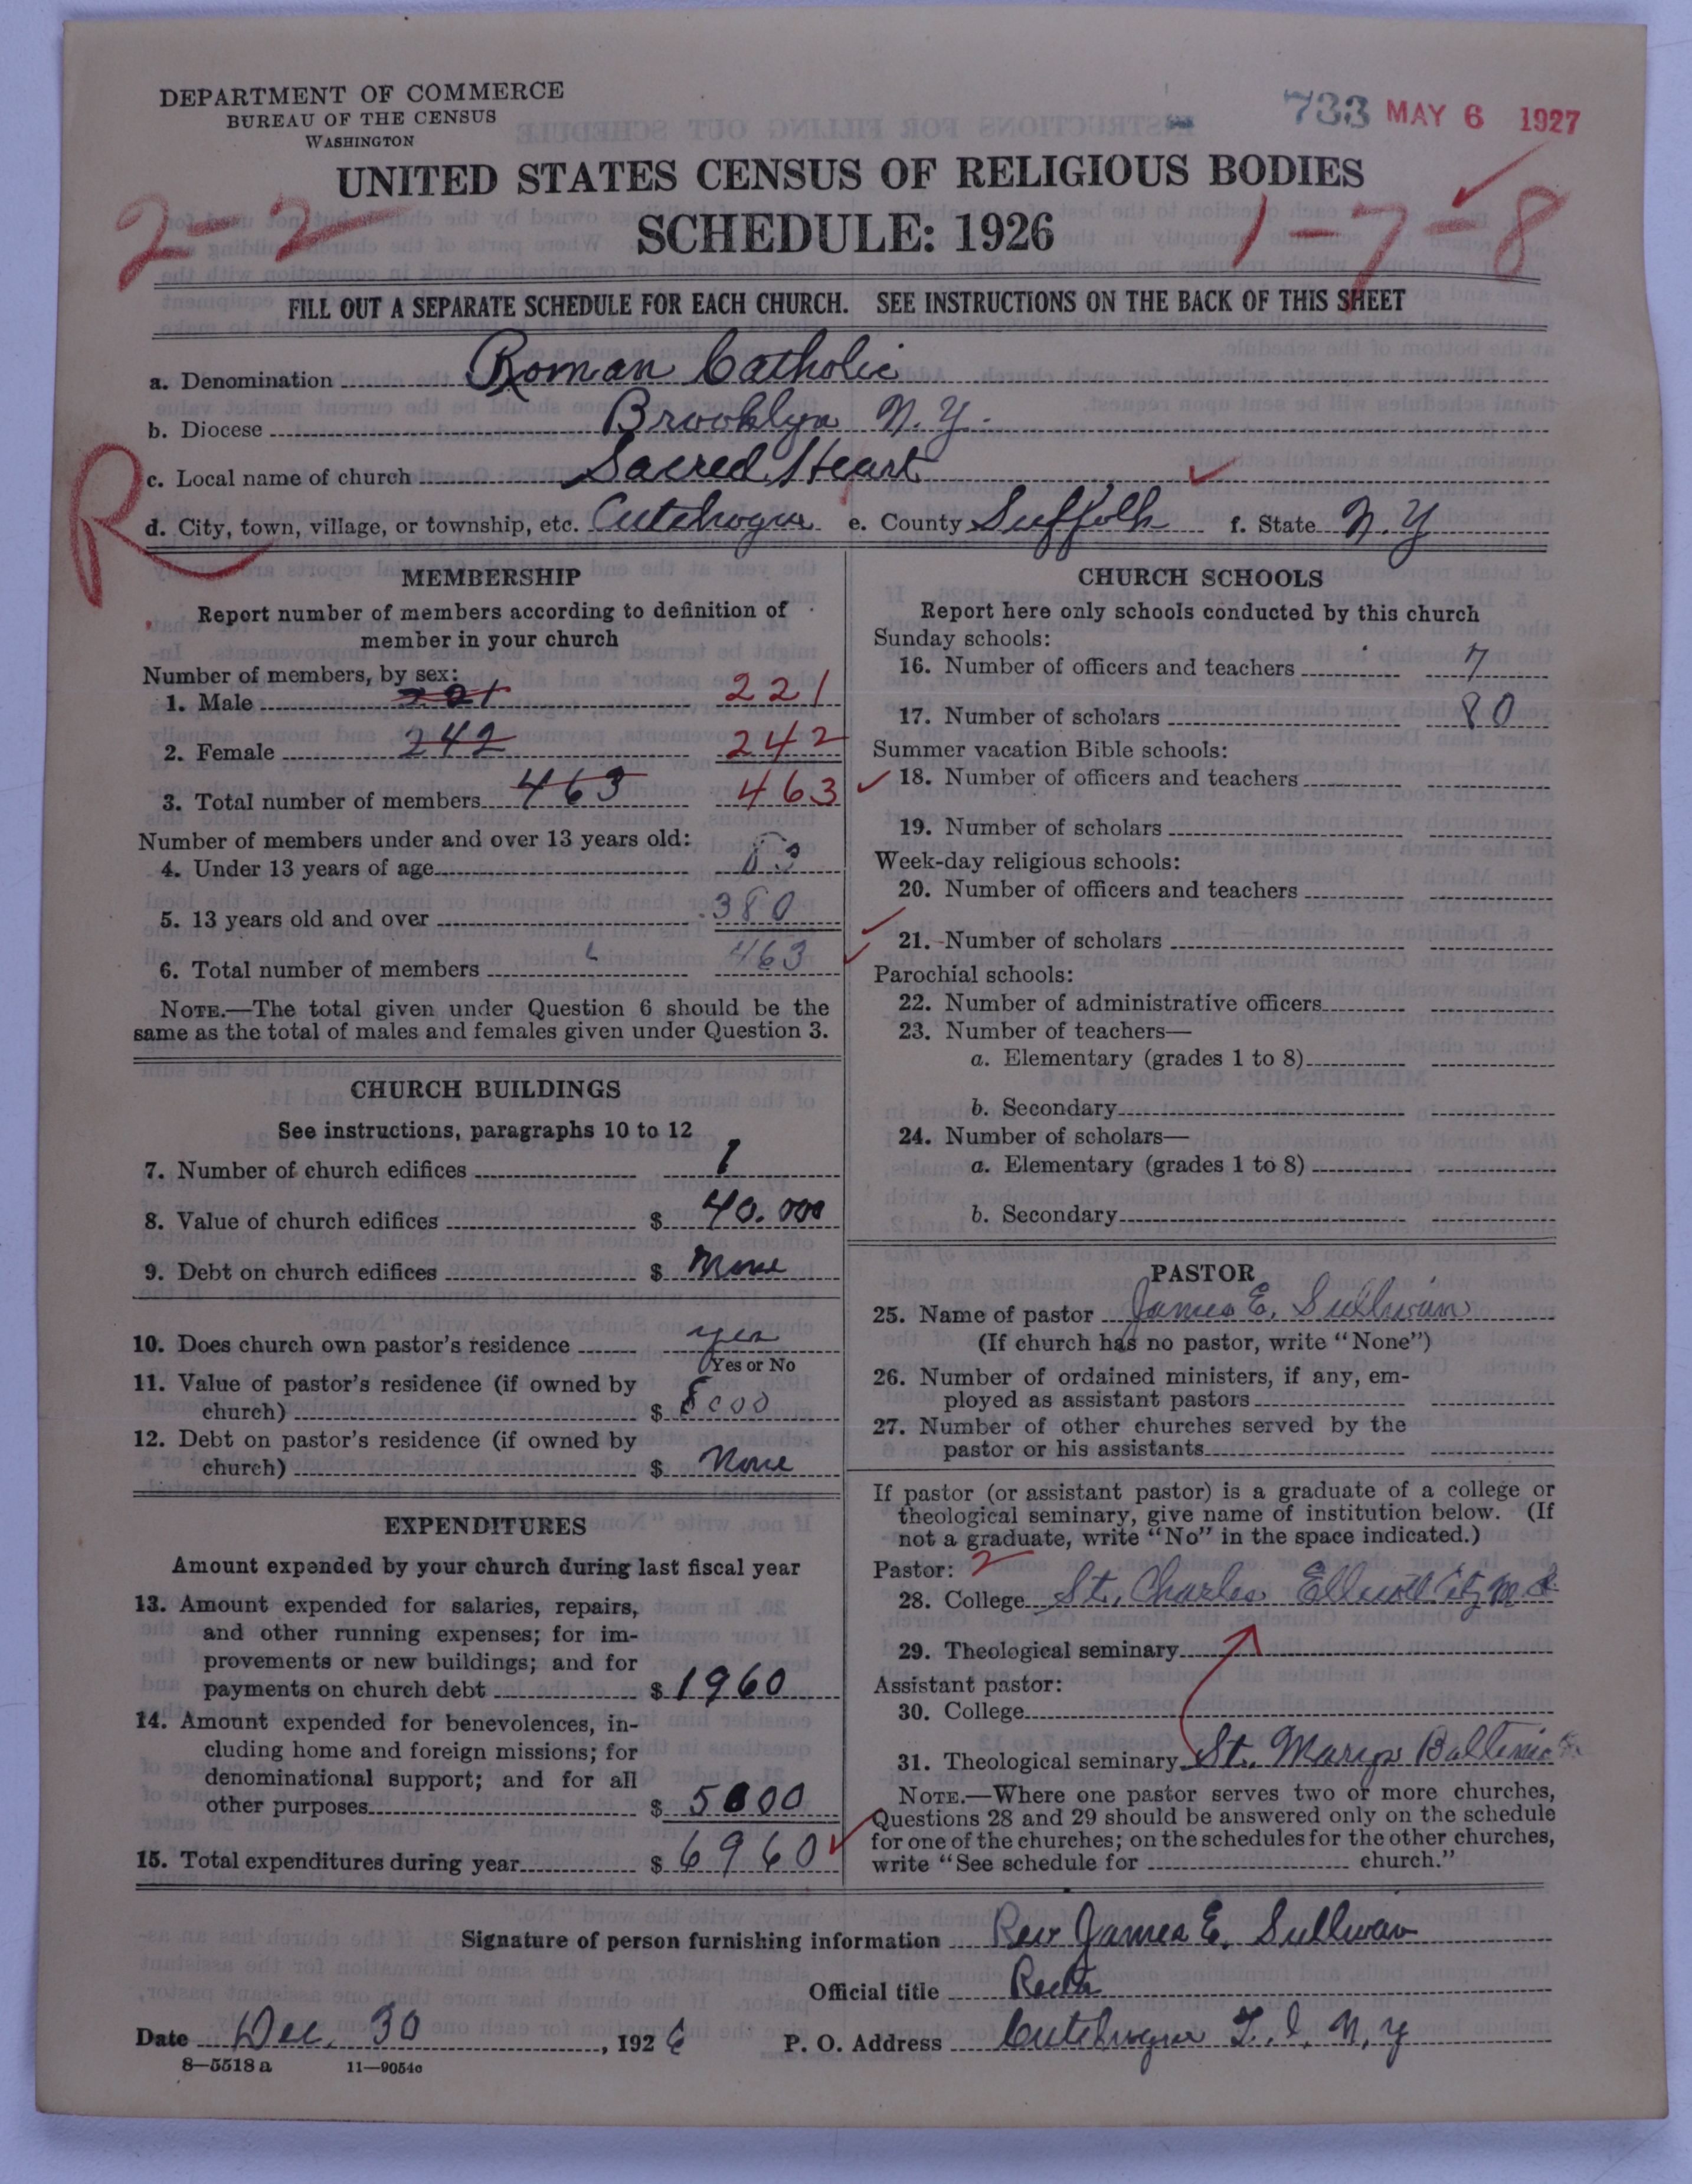 DEPARTMENT OF COMMERCE
BUREAU OF THE CENSUS
WASHINGTON
733 MAY 6 1927
UNITED STATES CENSUS OF RELIGIOUS BODIES
SCHEDULE: 1926
2-2
1-7-8
FILL OUT A SEPARATE SCHEDULE FOR EACH CHURCH. SEE INSTRUCTIONS ON THE BACK OF THIS SHEET
a. Denomination Roman Catholic
b. Diocese Brooklyn N.Y.
R
c. Local name of church Sacred Heart
d. City, town, village, or township, etc. Cutchogue e. County Suffolk f. State N.Y
MEMBERSHIP
Report number of members according to definition of
member in your church
Number of members, by sex:
1. Male 221 221
2. Female 242 242
3. Total number of members 463 463
Number of members under and over 13 years old:
4. Under 13 years of age 83
5. 13 years old and over 380
6. Total number of members 463
NOTE.—The total given under Question 6 should be the
same as the total of males and females given under Question 3.
CHURCH BUILDINGS
See instructions, paragraphs 10 to 12
7. Number of church edifices 1
8. Value of church edifices $ 40.000
9. Debt on church edifices $ None
10. Does church own pastor's residence yes
Yes or No
11. Value of pastor's residence (if owned by
church) $ 8000
12. Debt on pastor's residence (if owned by
church) $ None
EXPENDITURES
Amount expended by your church during last fiscal year
13. Amount expended for salaries, repairs,
and other running expenses; for im-
provements or new buildings; and for
payments on church debt $ 1960
14. Amount expended for benevolences, in-
cluding home and foreign missions; for
denominational support; and for all
other purposes $ 5000
15. Total expenditures during year $ 6960
CHURCH SCHOOLS
Report here only schools conducted by this church
Sunday schools:
16. Number of officers and teachers 7
17. Number of scholars 80
Summer vacation Bible schools:
18. Number of officers and teachers
19. Number of scholars
Week-day religious schools:
20. Number of officers and teachers
21. Number of scholars
Parochial schools:
22. Number of administrative officers
23. Number of teachers—
a. Elementary (grades 1 to 8)
b. Secondary
24. Number of scholars—
a. Elementary (grades 1 to 8)
b. Secondary
PASTOR
25. Name of pastor James E. Sullivan
(If church has no pastor, write "None")
26. Number of ordained ministers, if any, em-
ployed as assistant pastors
27. Number of other churches served by the
pastor or his assistants
If pastor (or assistant pastor) is a graduate of a college or
theological seminary, give name of institution below. (If
not a graduate, write "No" in the space indicated.)
Pastor: 2
28. College St. Charles Ellicott City Md.
29. Theological seminary
Assistant pastor:
30. College
31. Theological seminary St. Marys Baltimore
NOTE.—Where one pastor serves two or more churches,
Questions 28 and 29 should be answered only on the schedule
for one of the churches; on the schedules for the other churches,
write "See schedule for church."
Signature of person furnishing information Rev James E. Sullivan
Official title Rector
Date Dec. 30, 1926 P. O. Address Cutchogue L.I. N.Y
8—5518 a 11—9054c